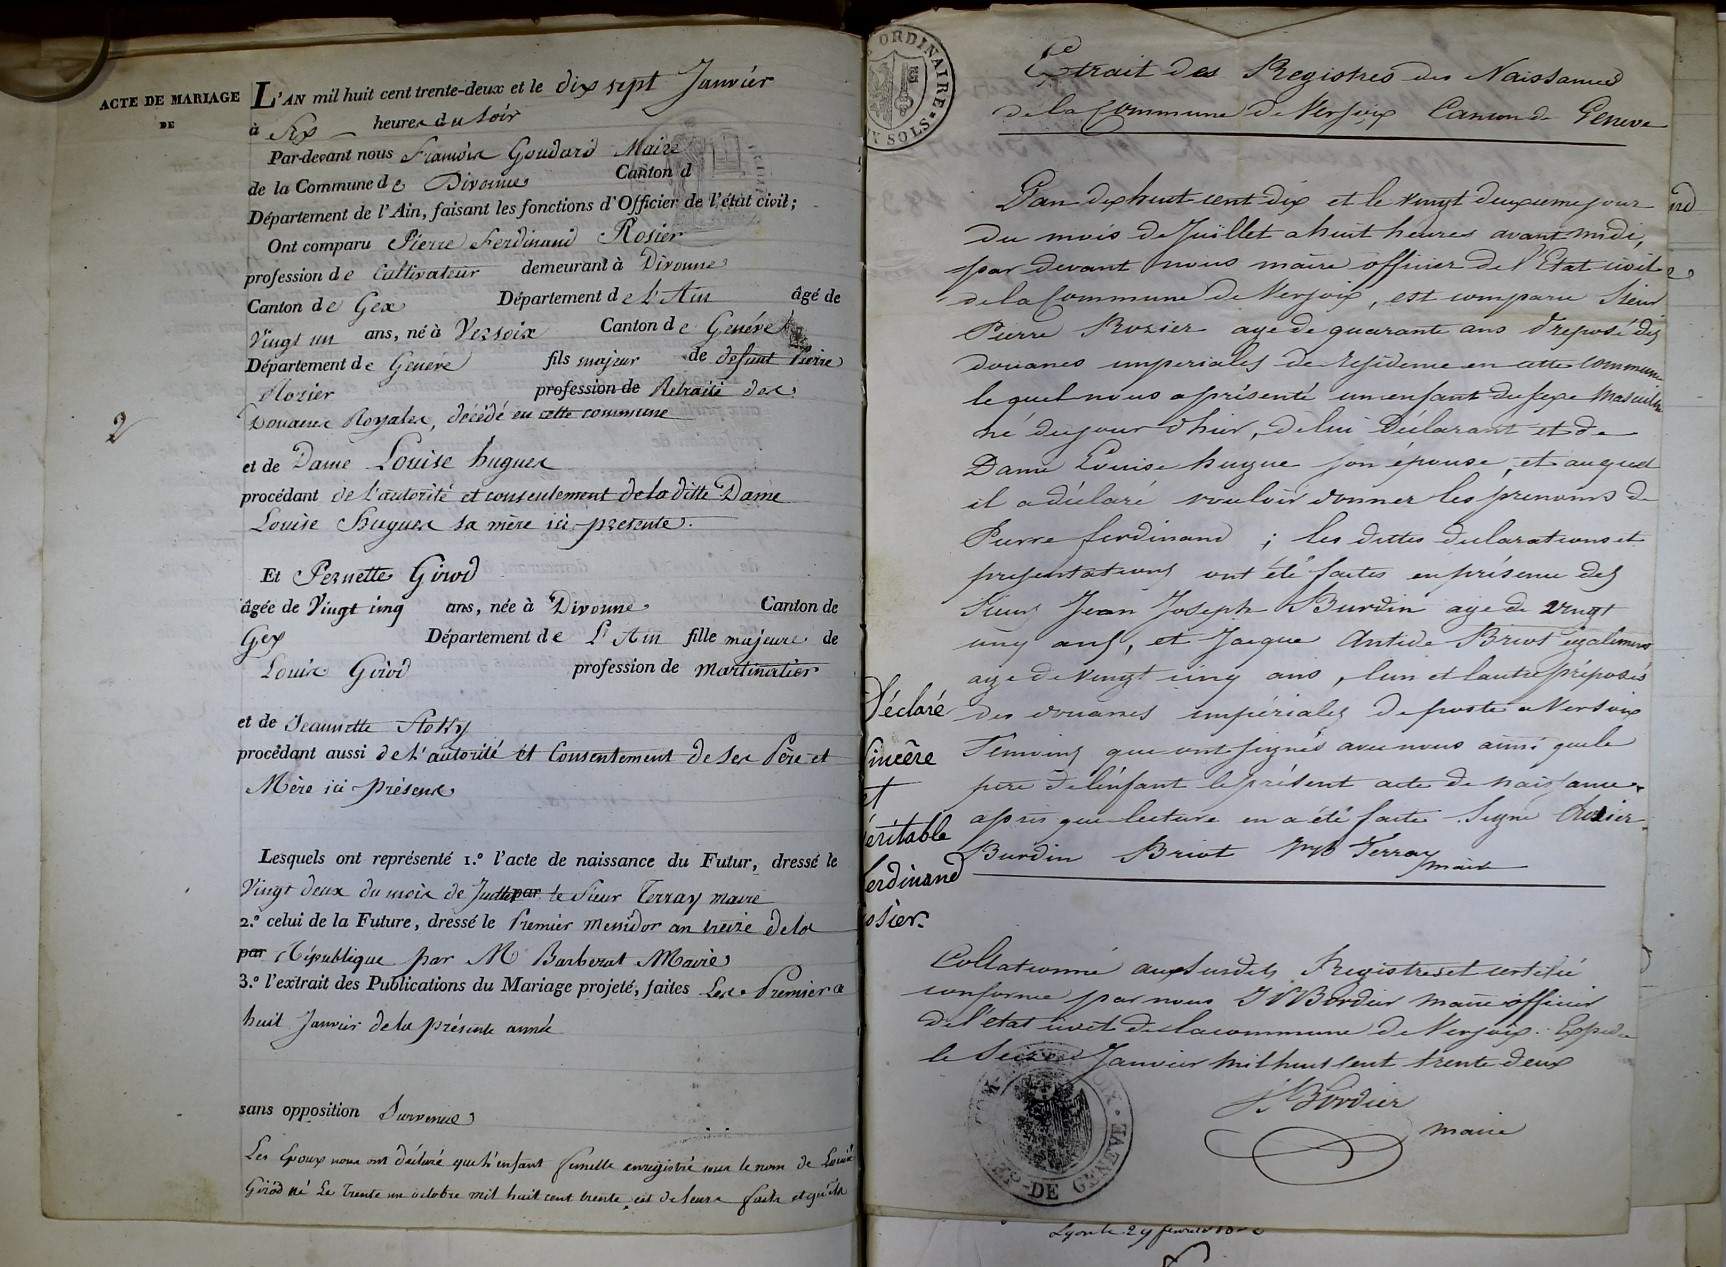 ACTE DE MARIAGE
DE
2
L'AN mil huit cent trente-deux et le dix sept Janvier
à Six heures du soir
Par-devant nous François Goudard Maire
de la Commune de Divonne Canton d
Département de l'Ain, faisant les fonctions d'Officier de l'état civil;
Ont comparu Pierre Ferdinand Rosier
profession de Cultivateur demeurant à Divonne
Canton de Gex Département de L'Ain âgé de
Vingt un ans, né à Versoix Canton de Genéve
Département de Genéve fils majeur de defunt Pierre
Rozier profession de Retraité des
Douanes Royales, décédé en cette commune
et de Dame Louise hugues
procédant de l'autorité et consentement de la ditte Dame
Louise Hugues sa mère ici presente.
Et Pernette Girod
âgée de Vingt cinq ans, née à Divonne Canton de
Gex Département de L'Ain fille majeure de
Louis Girod profession de Martinatier
et de Jeannette
procédant aussi de l'autorité et Consentement de ses Père et
Mère ici présens
Lesquels ont représenté 1.º l'acte de naissance du Futur, dressé le
Vingt deux du mois de par le Sieur Terray maire
2.º celui de la Future, dressé le Premier Messidor an treize de la
par République par M Barberat Maire
3.º l'extrait des Publications du Mariage projeté, faites Les Premier &
huit Janvier de la présente année
sans opposition Survenue
Les Epoux nous ont déclaré que l'enfant femelle enregistré sous le nom de Louise
Girod né Le trente un octobre mil huit cent trente, est de leurs faits et qu'ils
ORDINAIRE
SOLS
Extrait des Registres des Naissances
de la Commune de Versoix Canton de Geneve
L'an dix huit cent dix et le vingt deuxieme jour
du mois de Juillet a huit heures avant midi,
par devant nous maire officier de l'Etat civil
de la Commune de Versoix, est comparu Sieur
Pierre Rozier age de quarante ans Preposé des
douanes imperiales de residence en cette commune
lequel nous a présenté un enfant du sexe masculin
né du jour d'hier, de lui Déclarant et de
Dame Louise hugue son épouse, et auquel
il a déclaré vouloir donner les prenoms de
Pierre ferdinand ; les dittes declarations et
presentations ont été faites en présence des
Sieurs Jean Joseph Burdin age de vingt
cinq ans, et Jacque Antide Briot également
age de vingt cinq ans, l'un et l'autre préposés
des douanes impériales de poste a Versoix
Temoins que ont signés avec nous ainsi que le
pere de l'enfant le présent acte de naissance
après que lecture en a été faite. Signé Rosier
Burdin Briot Terray
maire
Déclaré
Sincère
et
Véritable
Ferdinand
Rosier.
Collationné aux Susdits Registres et certifié
conforme par nous Bordier maire officier
de l'etat civil de la commune de Versoix. Expedie
le Seize Janvier mil huit cent trente deux
Bordier
maire
DE GENEVE
Lyon le 29 fevrier